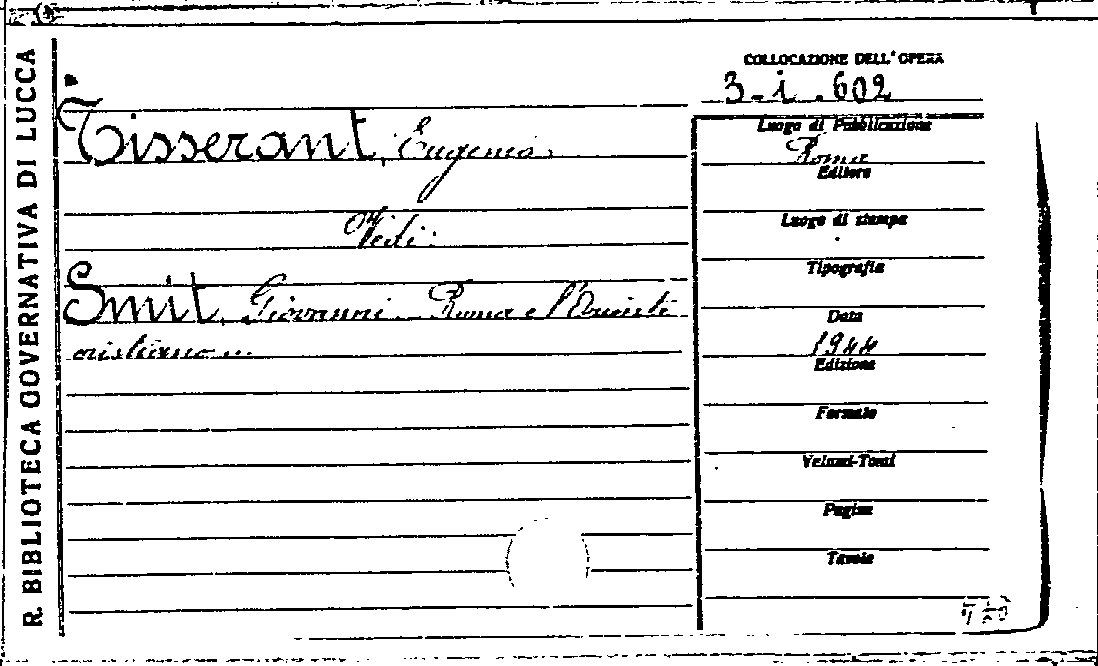 R. BIBLIOTECA GOVERNATIVA DI LUCCA
COLLOCAZIONE DELL'OPERA
3-i.602
Tisserant, Eugenio.
Vedi:
Smit, Giovanni. Roma e l'Oriente
cristiano...
Luogo di Pubblicazione
Roma
Editore
Luogo di stampa
Tipografia
Data
1944
Edizione
Formato
Volumi-Tomi
Pagine
Tavole